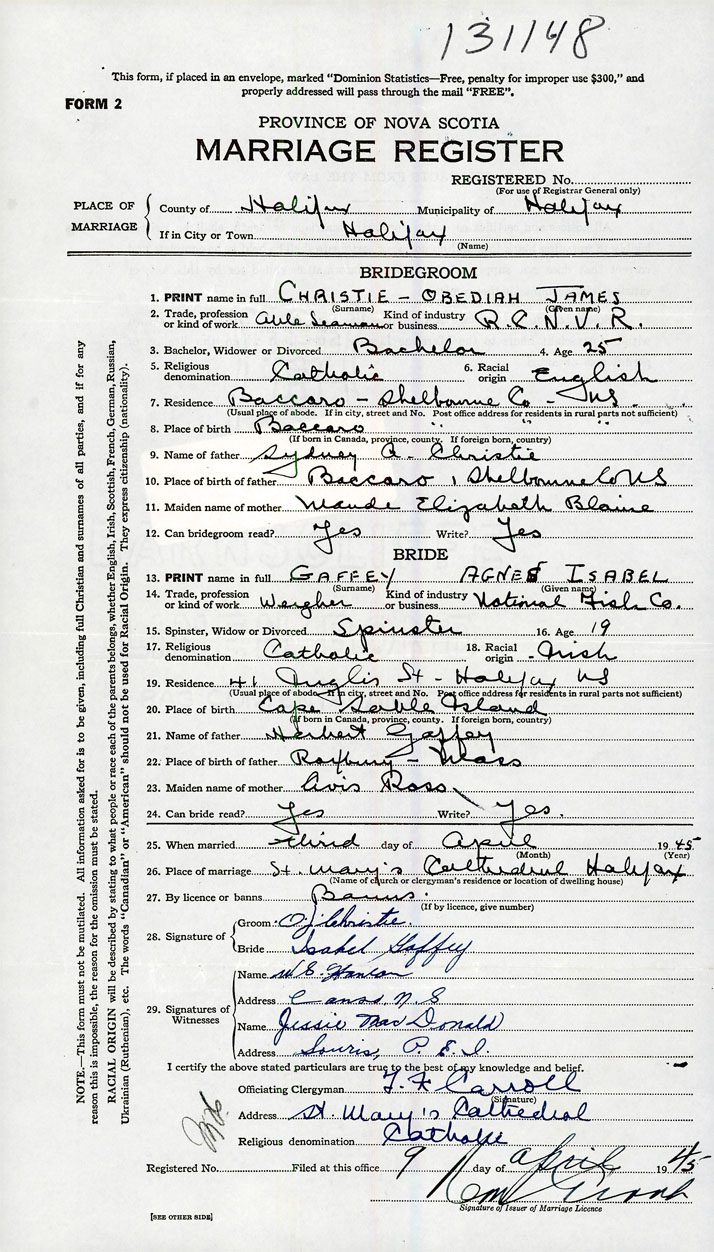 131148
This form, if placed in an envelope, marked "Dominion Statistics—Free, penalty for improper use $300," and
properly addressed will pass through the mail "FREE".
FORM 2
PROVINCE OF NOVA SCOTIA
MARRIAGE REGISTER
REGISTERED No.
(For use of Registrar General only)
PLACE OF MARRIAGE
County of Halifax Municipality of Halifax
If in City or Town Halifax
(Name)
BRIDEGROOM
1. PRINT name in full CHRISTIE - OBEDIAH JAMES
(Surname) (Given name)
2. Trade, profession or kind of work Able Seaman Kind of industry or business R.C.N.V.R.
3. Bachelor, Widower or Divorced Bachelor 4. Age 25
5. Religious denomination Catholic 6. Racial origin English
7. Residence Baccaro - Shelbourne Co - NS
(Usual place of abode. If in city, street and No. Post office address for residents in rural parts not sufficient)
8. Place of birth Baccaro " " "
(If born in Canada, province, county. If foreign born, country)
9. Name of father Sydney A. Christie
10. Place of birth of father Baccaro, Shelbourne Co NS
11. Maiden name of mother Maude Elizabeth Blaine
12. Can bridegroom read? Yes Write? Yes
BRIDE
13. PRINT name in full GAFFEY AGNES ISABEL
(Surname) (Given name)
14. Trade, profession or kind of work Weigher Kind of industry or business National Fish Co.
15. Spinster, Widow or Divorced Spinster 16. Age 19
17. Religious denomination Catholic 18. Racial origin Irish
19. Residence 41 Inglis St - Halifax NS
(Usual place of abode. If in city, street and No. Post office address for residents in rural parts not sufficient)
20. Place of birth Cape Sable Island
(If born in Canada, province, county. If foreign born, country)
21. Name of father Herbert Gaffey
22. Place of birth of father Roxbury - Mass
23. Maiden name of mother Avis Ross
24. Can bride read? Yes Write? Yes.
25. When married third day of April 1945
(Month) (Year)
26. Place of marriage St. Mary's Cathedral Halifax
(Name of church or clergyman's residence or location of dwelling house)
27. By licence or banns Banns
(If by licence, give number)
28. Signature of
Groom O J Christie
Bride Isabel Gaffey
29. Signatures of Witnesses
Name W. E. Hanlon
Address Canso N.S
Name Jessie MacDonald
Address Souris, P.E.I.
I certify the above stated particulars are true to the best of my knowledge and belief.
Officiating Clergyman F. F Carroll
(Signature)
Address St. Mary's Cathedral
Religious denomination Catholic
Registered No. Filed at this office 9 day of April 1945
Signature of Issuer of Marriage Licence
[SEE OTHER SIDE]
NOTE.—This form must not be mutilated. All information asked for is to be given, including full Christian and surnames of all parties, and if for any
reason this is impossible, the reason for the omission must be stated.
RACIAL ORIGIN will be described by stating to what people or race each of the parents belongs, whether English, Irish, Scottish, French, German, Russian,
Ukrainian (Ruthenian), etc. The words "Canadian" or "American" should not be used for Racial Origin. They express citizenship (nationality).